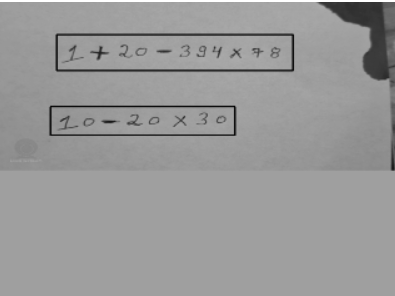 1 + 20 - 394 x 78
10 - 20 x 30